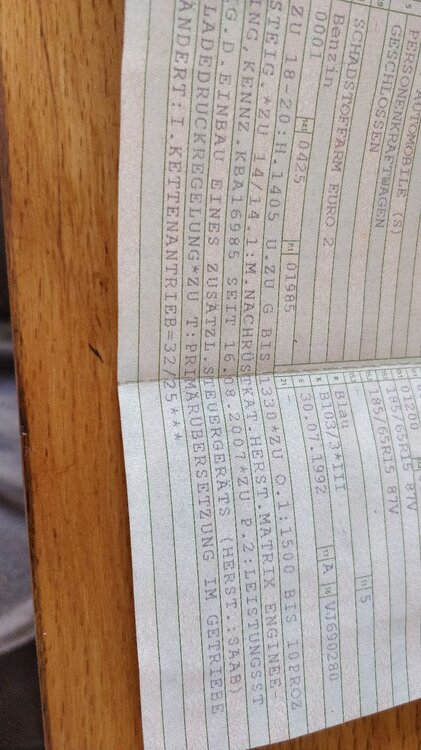 5 AUTOMOBILE (S)
PERSONENKRAFTWAGEN
GESCHLOSSEN
SCHADSTOFFARM EURO 2
Benzin
0001 0425 P.1 01985
01200
185/65R15 87V
185/65R15 87V
R Blau 11 5
K B103/3*III
6 30.07.1992 17 A 16 VJ690280
21 -
ZU 18-20:H.1405 U.ZU G BIS 1330*ZU O.1:1500 BIS 10PROZ
STEIG.*ZU 14/14.1:M.NACHRÜSTKAT.HERST.MATRIX ENGINEE-
ING,KENNZ.KBA16985 SEIT 16.08.2007*ZU P.2:LEISTUNGSST
G.D.EINBAU EINES ZUSÄTZL.STEUERGERÄTS (HERST.:SAAB)
LADEDRUCKREGELUNG*ZU T:PRIMÄRÜBERSETZUNG IM GETRIEBE
ÄNDERT:I.KETTENANTRIEB=32/25***